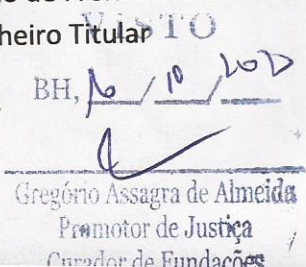 heiro Titular
VISTO
BH, 10 / 10 /
Gregório Assagra de Almeida
Promotor de Justiça
Curador de Fundações